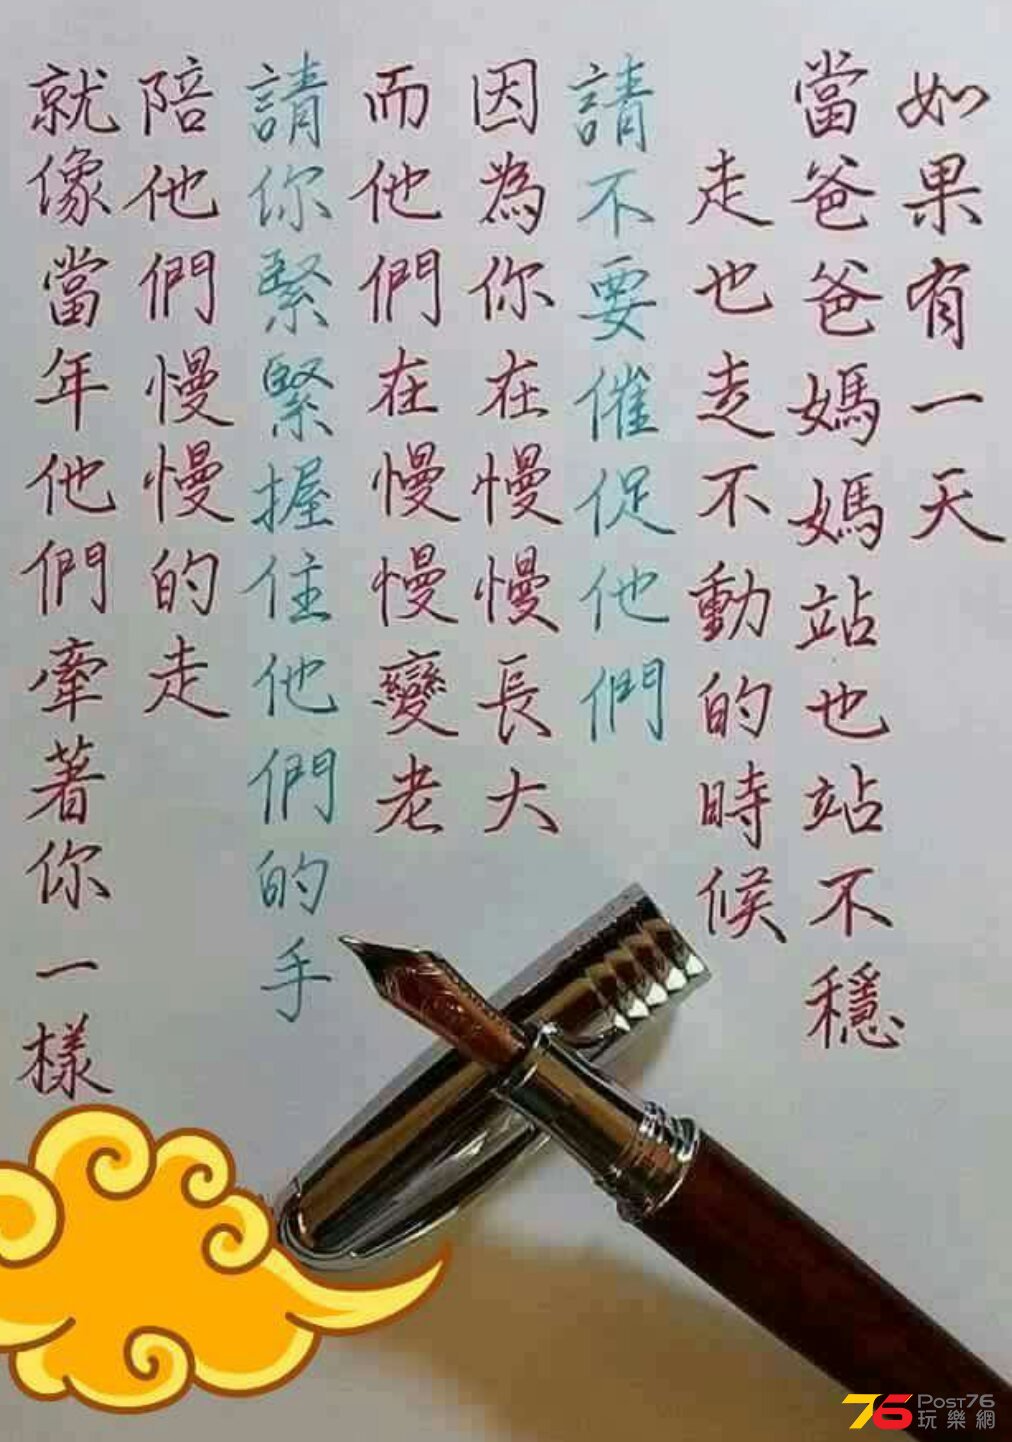 如果有一天
當爸爸媽媽站也站不穩
走也走不動的時候
請不要催促他們
因為你在慢慢長大
而他們在慢慢變老
請你緊緊握住他們的手
陪他們慢慢的走
就像當年他們牽著你一樣
76 POST76
玩樂網